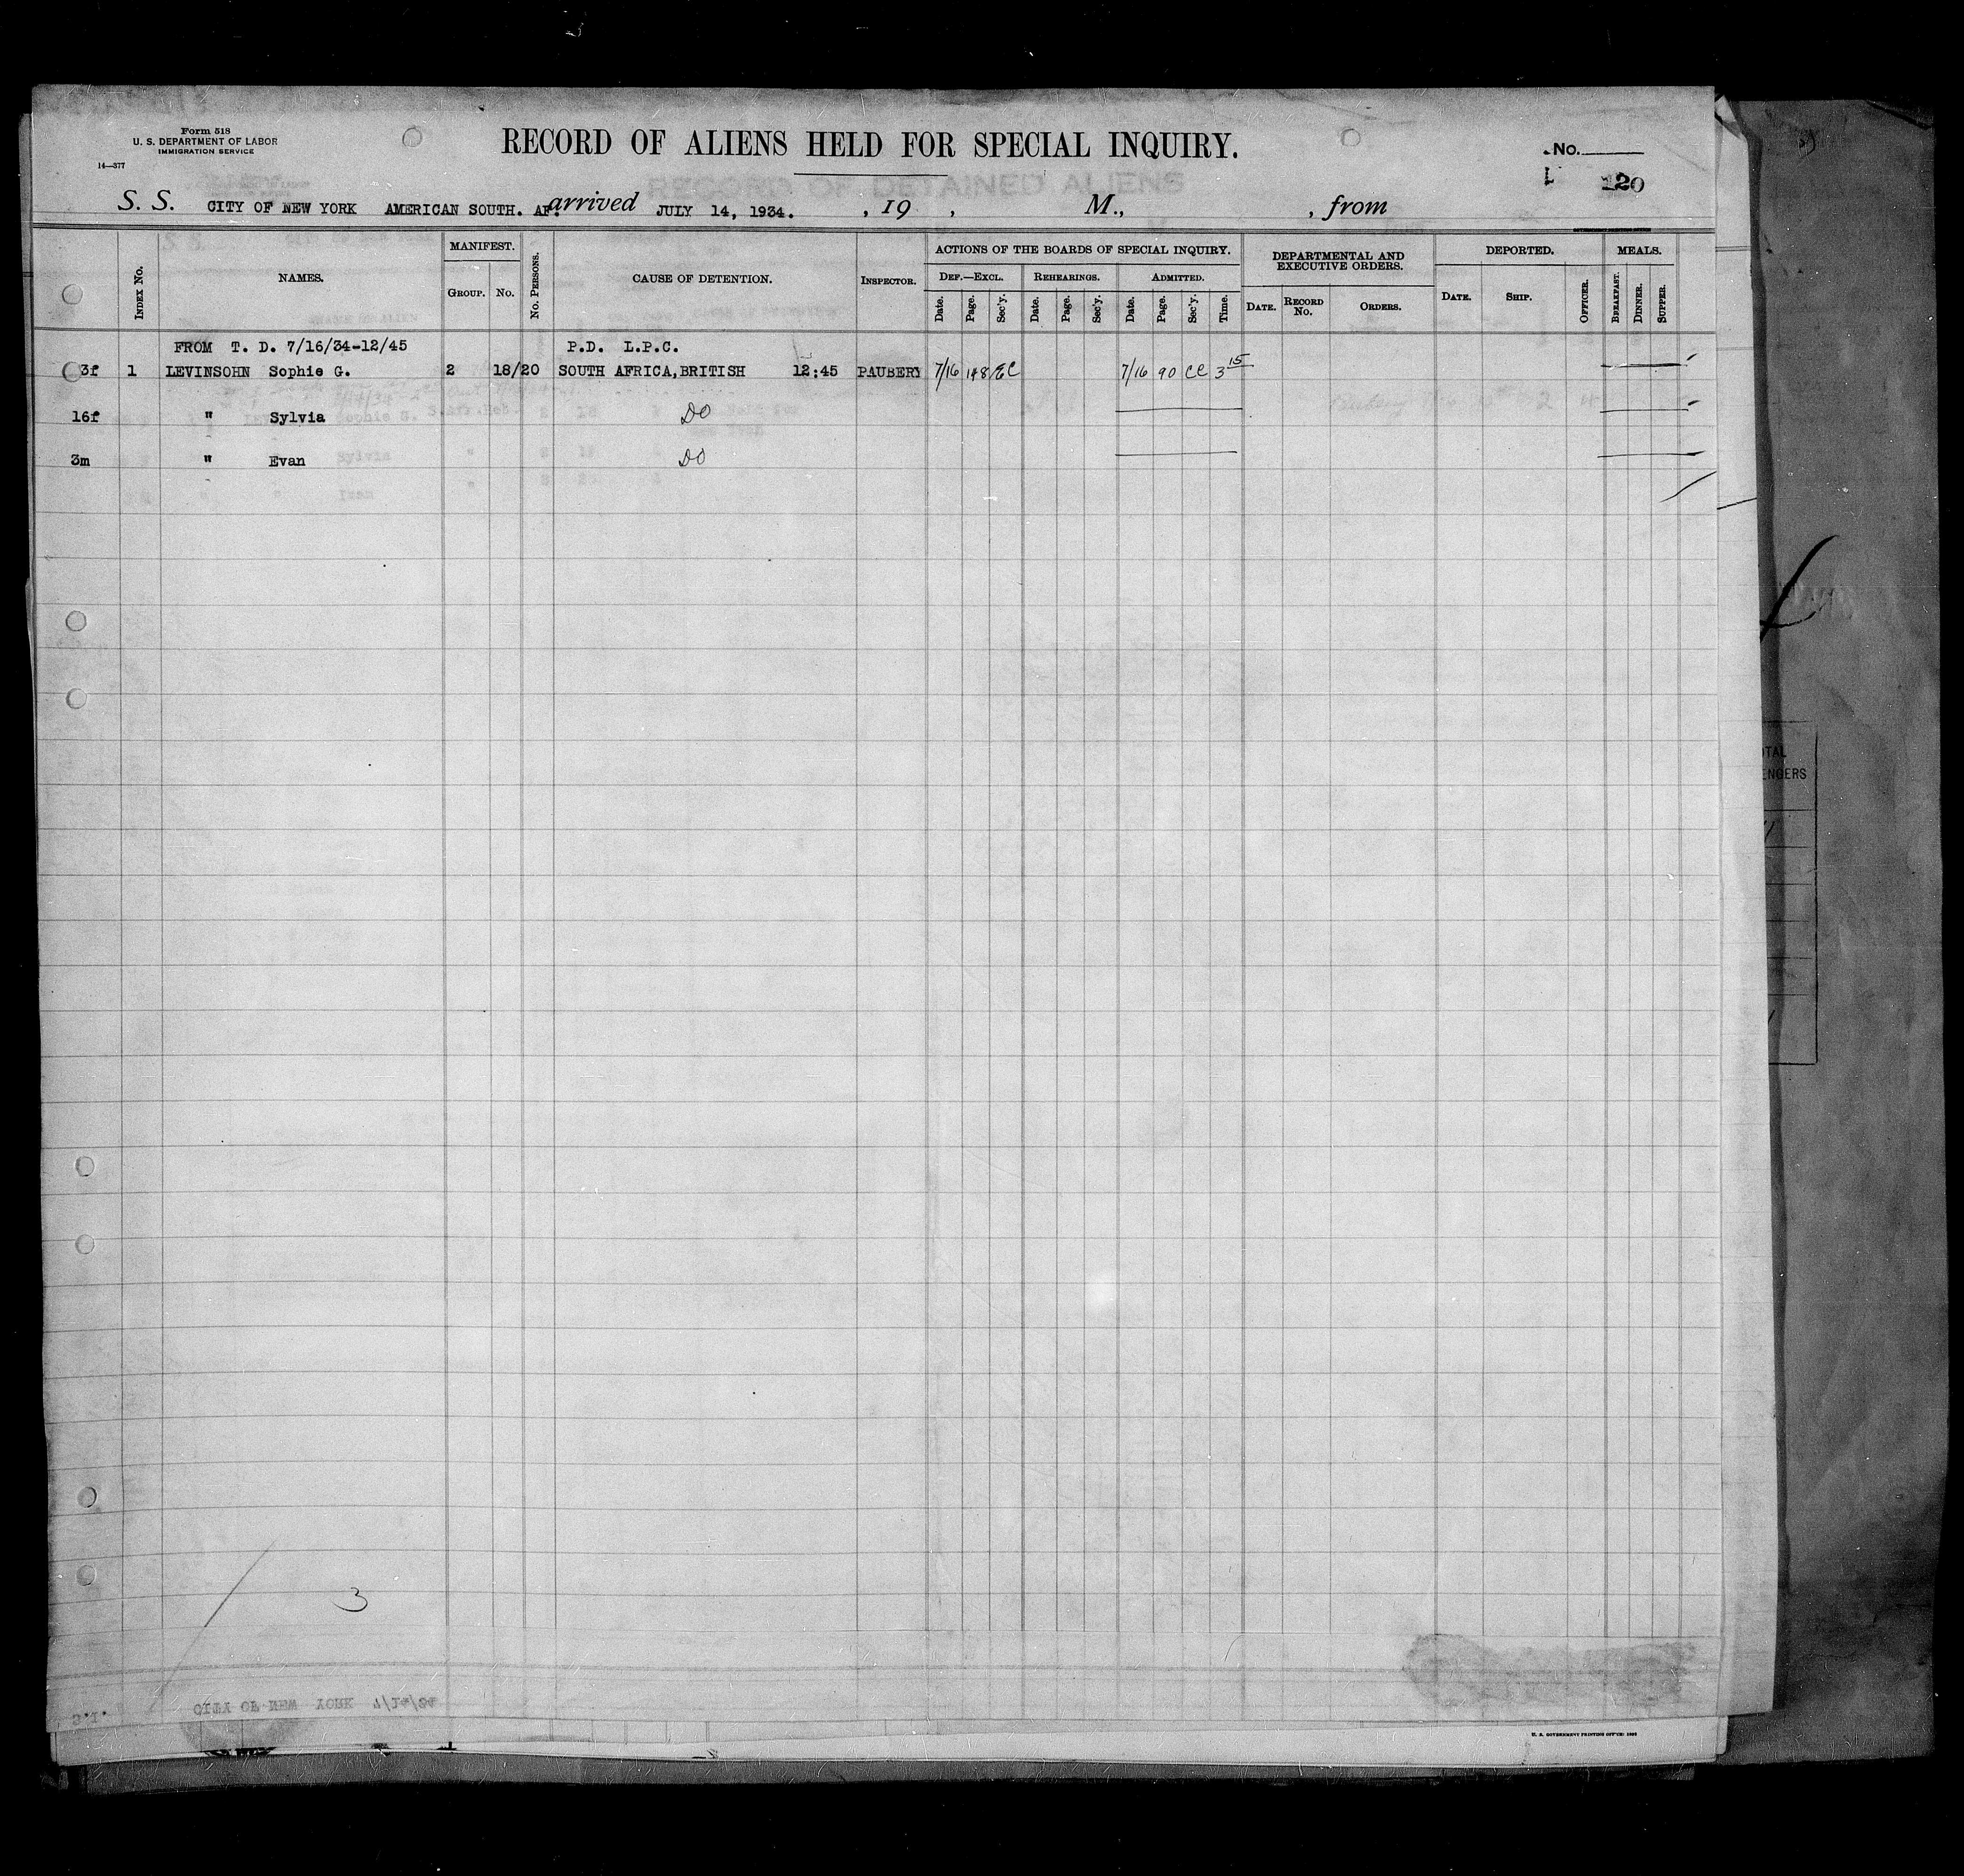 Form 518
U. S. DEPARTMENT OF LABOR
IMMIGRATION SERVICE
14—377
RECORD OF ALIENS HELD FOR SPECIAL INQUIRY.
No.
20
RECORD OF DETAINED ALIENS
S. S. CITY OF NEW YORK AMERICAN SOUTH. AF. arrived JULY 14, 1934. , 19 , M., , from
Index No.
NAMES.
MANIFEST.
Group. No.
No. Persons.
CAUSE OF DETENTION.
Inspector.
ACTIONS OF THE BOARDS OF SPECIAL INQUIRY.
Def.—Excl. Rehearings. Admitted.
Date. Page. Sec'y. Date. Page. Sec'y. Date. Page. Sec'y. Time.
DEPARTMENTAL AND
EXECUTIVE ORDERS.
Date. Record No. Orders.
DEPORTED.
Date. Ship. Officer.
MEALS.
Breakfast. Dinner. Supper.
FROM T. D. 7/16/34-12/45 P.D. L.P.C.
3f 1 LEVINSOHN Sophie G. 2 18/20 SOUTH AFRICA,BRITISH 12:45 PAUBERY 7/16 148 EC 7/16 90 CC 3 15
16f " Sylvia DO
3m " Evan DO
3
CITY OF NEW YORK 7/14/34
S.I.
U. S. GOVERNMENT PRINTING OFFICE